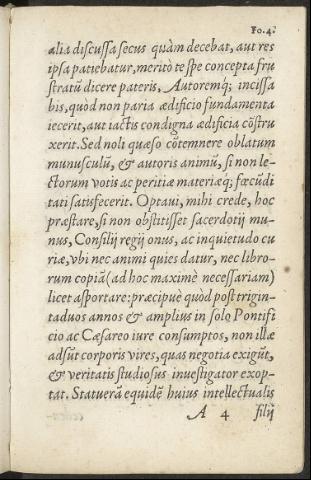 Fo. 4.
alia discussa secus quàm decebat, aut res
ipsa patiebatur, meritò te spe concepta fru
stratũ dicere pateris, Autoremq́; incissa
bis, quòd non paria ædificio fundamenta
iecerit, aut iactis condigna ædificia cõstru
xerit. Sed noli quæso cõtemnere oblatum
munusculũ, & autoris animũ, si non le-
ctorum votis ac peritiæ materiæq́; fœcũdi
tati satisfecerit. Optaui, mihi crede, hoc
præstare, si non obstitisset sacerdotij mu-
nus, Consilij regij onus, ac inquietudo cu
riæ, vbi nec animi quies datur, nec libro-
rum copiã (ad hoc maximè necessariam)
licet asportare: præcipuè quòd post trigin-
taduos annos & amplius in solo Pontifi
cio ac Cæsareo iure consumptos, non illæ
adsũt corporis vires, quas negotia exigũt,
& veritatis studiosus inuestigator exop-
tat. Statuerã equidẽ huius intellectualis
A 4 filij